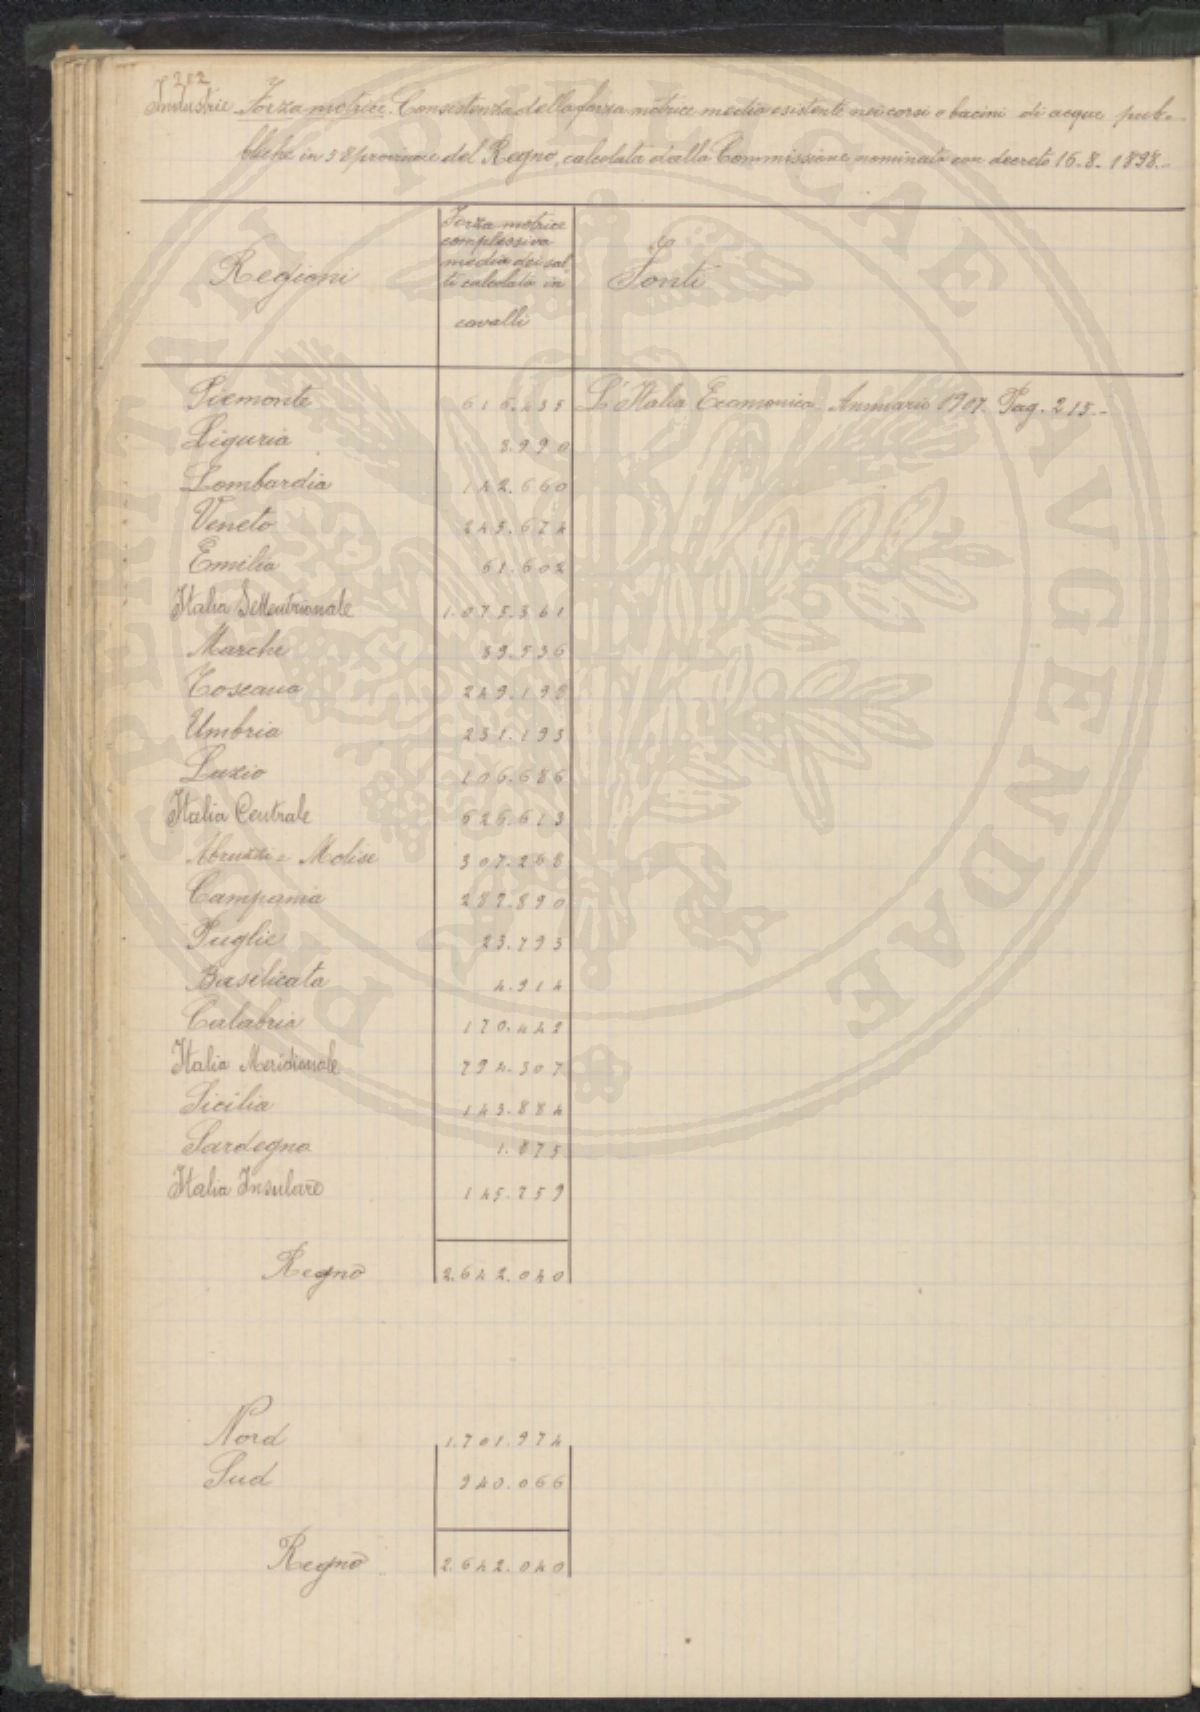 212
Industrie Forza motrice. Consistenza della forza motrice media esistente nei corsi o bacini di acque pub-
bliche in 58 provincie del Regno, calcolata dalla Commissione nominata con decreto 16.8.1898.-
Regioni
Forza motrice
complessiva
media dei sal
ti calcolata in
cavalli
Fonti
Piemonte 616.435 L'Italia Economica Annuario 1907. Pag. 215.-
Liguria 8.990
Lombardia 142.660
Veneto 245.674
Emilia 61.602
Italia Settentrionale 1.075.361
Marche 39.536
Toscana 249.198
Umbria 231.193
Lazio 106.686
Italia Centrale 626.613
Abruzzi e Molise 307.268
Campania 287.890
Puglie 23.793
Basilicata 4.914
Calabria 170.442
Italia Meridionale 794.307
Sicilia 143.884
Sardegna 1.875
Italia Insulare 145.759
Regno 2.642.040
Nord 1.701.974
Sud 940.066
Regno 2.642.040
PROSPERITATI PVBLICAE AVGENDAE